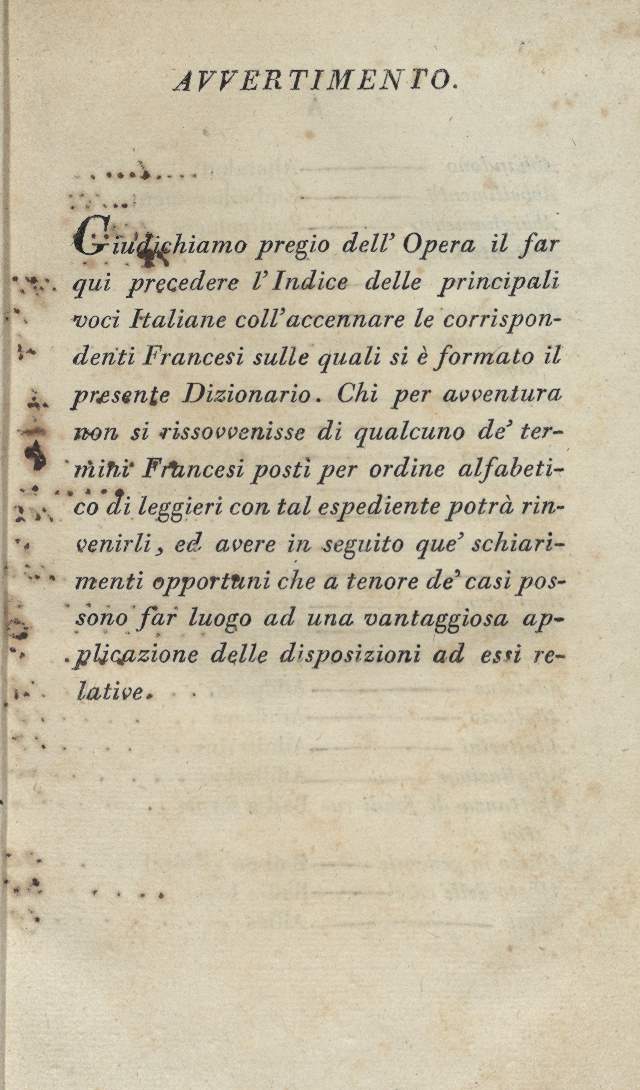 AVVERTIMENTO.
Giudichiamo pregio dell' Opera il far
qui precedere l'Indice delle principali
voci Italiane coll'accennare le corrispon-
denti Francesi sulle quali si è formato il
presente Dizionario. Chi per avventura
non si rissovvenisse di qualcuno de' ter-
mini Francesi posti per ordine alfabeti-
co di leggieri con tal espediente potrà rin-
venirli, ed avere in seguito que' schiari-
menti opportuni che a tenore de' casi pos-
sono far luogo ad una vantaggiosa ap-
plicazione delle disposizioni ad essi re-
lative.